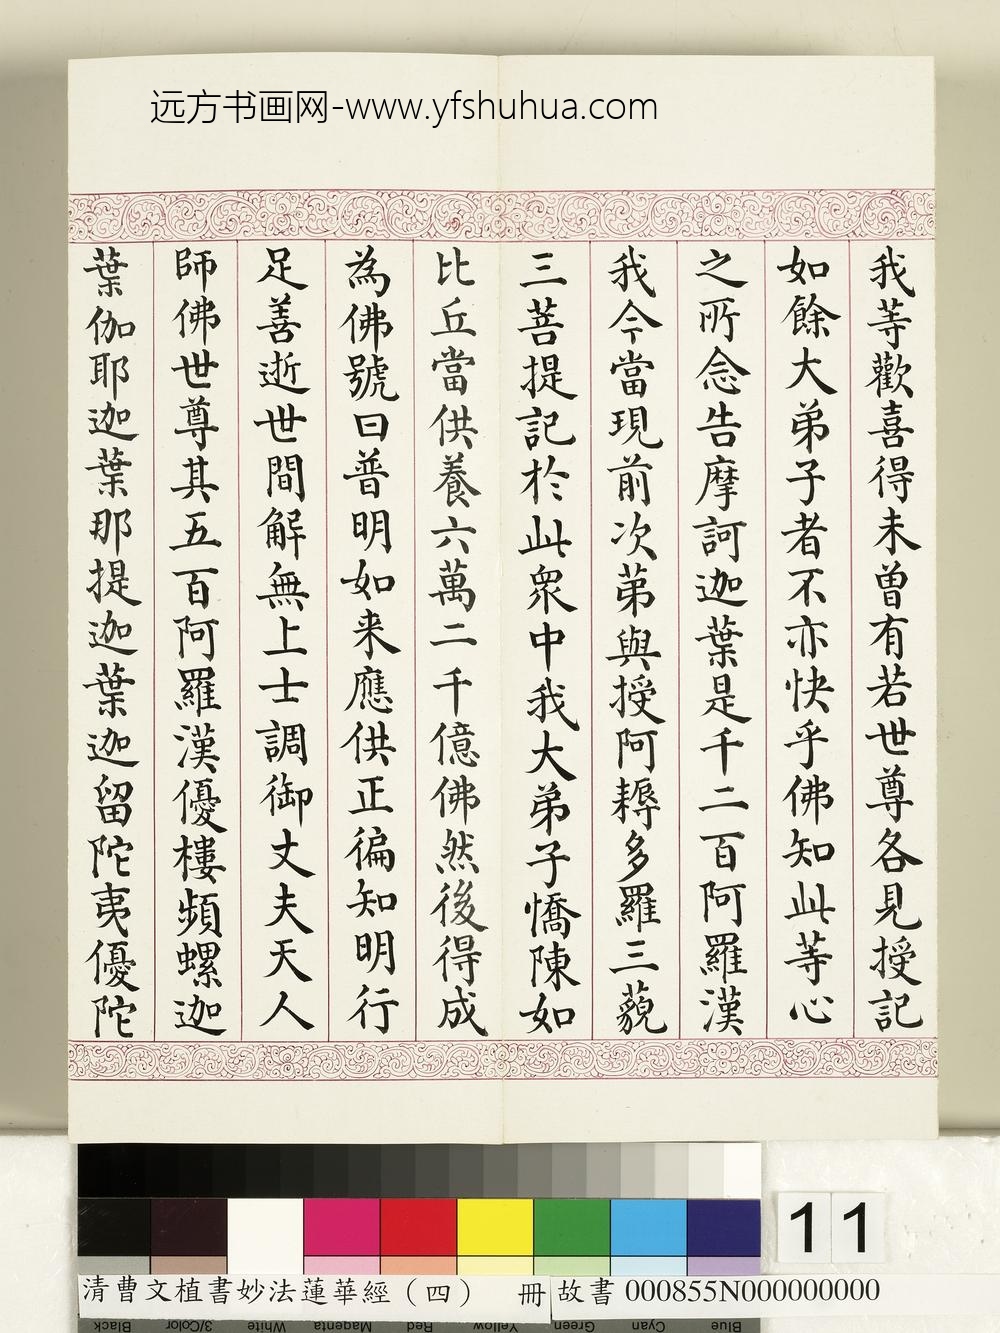 远方书画网-www.yfshuhua.com
我等歡喜得未曾有若世尊各見授記
如餘大弟子者不亦快乎佛知此等心
之所念告摩訶迦葉是千二百阿羅漢
我今當現前次弟與授阿耨多羅三藐
三菩提記於此眾中我大弟子憍陳如
比丘當供養六萬二千億佛然後得成
為佛號曰普明如来應供正徧知明行
足善逝世間解無上士調御丈夫天人
師佛世尊其五百阿羅漢優樓頻螺迦
葉伽耶迦葉那提迦葉迦留陀夷優陀
11
清曹文植書妙法蓮華經（四） 冊 故書 000855N000000000
Black 3/Color White Magenta Red Yellow Green Cyan Blue